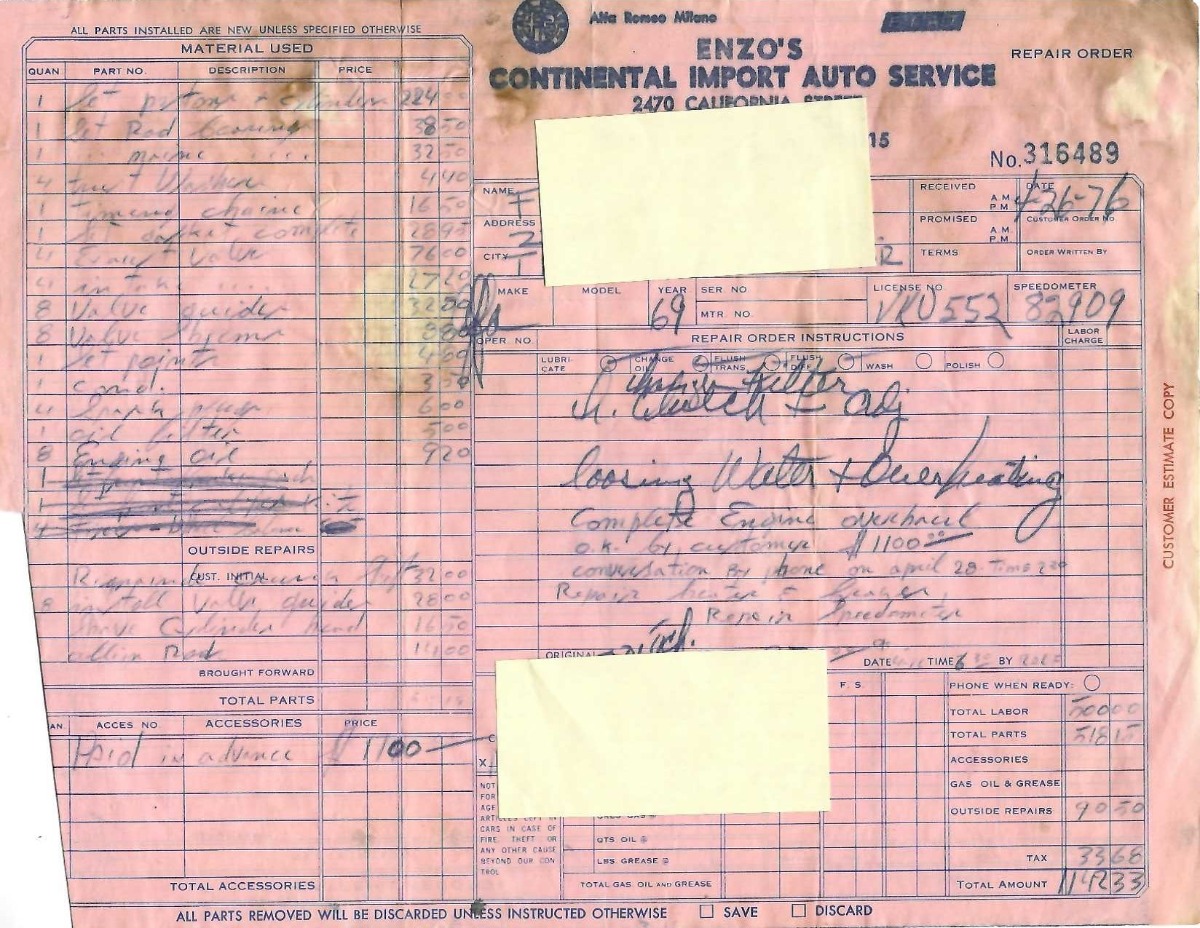 Alfa Romeo Milano
ENZO'S
CONTINENTAL IMPORT AUTO SERVICE
2470 CALIFORNIA STREET
15
REPAIR ORDER
No. 316489
ALL PARTS INSTALLED ARE NEW UNLESS SPECIFIED OTHERWISE
MATERIAL USED
QUAN PART NO. DESCRIPTION PRICE
1 Set pistons + cylinders 224 00
1 Set Rod bearing 38 50
1 " maine .... 32 50
4 Washer 4 40
1 Timing chaine 16 50
1 Set gasket complete 28 95
4 Exaust Valve 76 00
4 intake .... 27 20
8 Valve guides 32 00
8 Valve 8 80
1 Set points 4 60
1 Cond. 3 50
4 Spark plugs 6 00
1 oil filter 5 00
8 Engine oil 9 20
OUTSIDE REPAIRS
CUST. INITIAL
32 00
8 install valve guides 28 00
Cylinder head 16 50
allin Rod 14 00
BROUGHT FORWARD
TOTAL PARTS
AN. ACCES NO. ACCESSORIES PRICE
Paid in advance $1100
TOTAL ACCESSORIES
NAME F
ADDRESS 2
CITY T R
RECEIVED A.M. P.M.
PROMISED A.M. P.M.
TERMS
DATE 4-26-76
CUSTOMER ORDER NO.
ORDER WRITTEN BY
MAKE Alfa
MODEL
YEAR 69
SER. NO
MTR. NO.
LICENSE NO VRU 552
SPEEDOMETER 82909
OPER. NO. REPAIR ORDER INSTRUCTIONS LABOR CHARGE
LUBRICATE CHANGE OIL FLUSH TRANS FLUSH DIFF WASH POLISH
Filter
Clutch + adj
loosing Water + Overheating
Complete Engine overhaul
o.k. by customer $1100 00
conversation by phone on april 28 time 2
Repair heater + heager,
Repair Speedometer
ORIGINAL
DATE TIME 6 30 BY
F. S.
PHONE WHEN READY:
TOTAL LABOR 500 00
TOTAL PARTS 518 15
ACCESSORIES
GAS OIL & GREASE
OUTSIDE REPAIRS 90 50
TAX 33 68
TOTAL AMOUNT 1142 33
X
NOT
FOR
AGE
ARTICLES LEFT IN
CARS IN CASE OF
FIRE, THEFT OR
ANY OTHER CAUSE
BEYOND OUR CON
TROL
QTS. OIL @
LBS. GREASE @
TOTAL GAS, OIL AND GREASE
ALL PARTS REMOVED WILL BE DISCARDED UNLESS INSTRUCTED OTHERWISE SAVE DISCARD
CUSTOMER ESTIMATE COPY